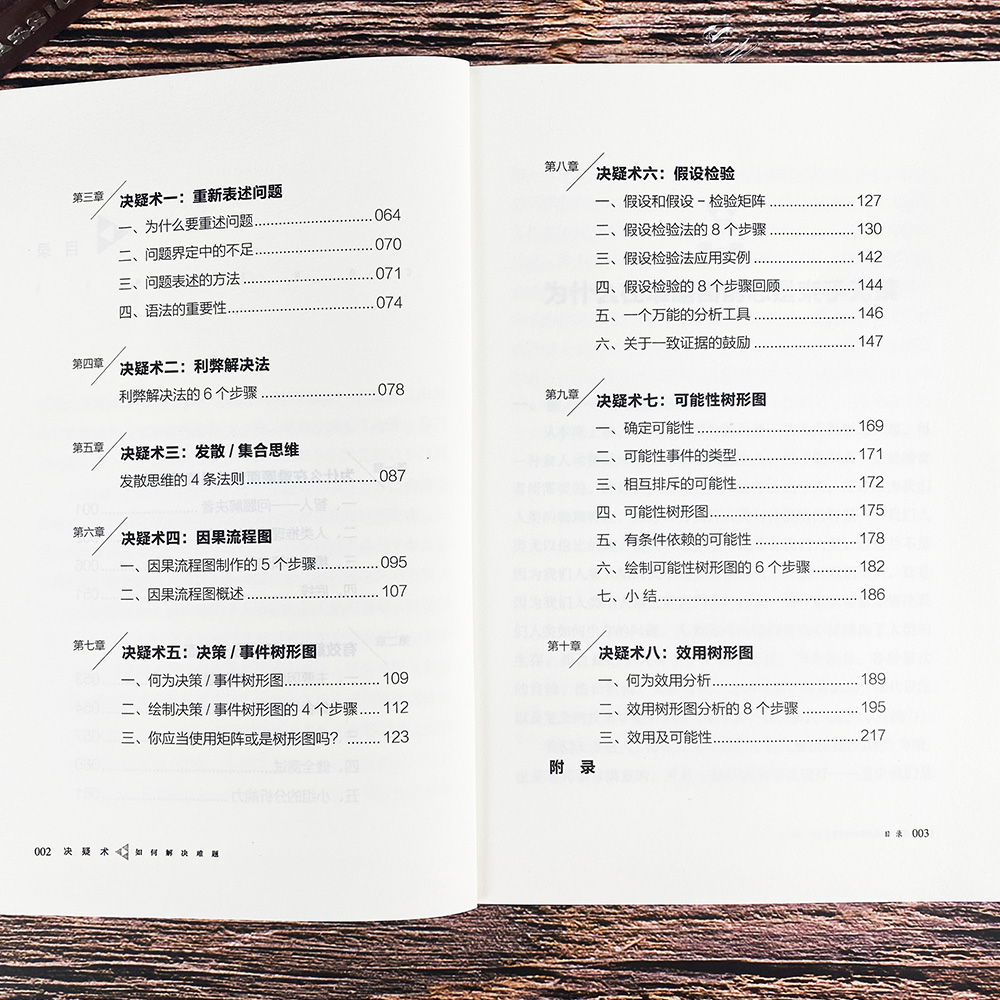 第三章
决疑术一：重新表述问题
一、为什么要重述问题................................064
二、问题界定中的不足................................070
三、问题表述的方法................................071
四、语法的重要性................................074
第四章
决疑术二：利弊解决法
利弊解决法的6个步骤................................078
第五章
决疑术三：发散/集合思维
发散思维的4条法则................................087
第六章
决疑术四：因果流程图
一、因果流程图制作的5个步骤................095
二、因果流程图概述................................107
第七章
决疑术五：决策/事件树形图
一、何为决策/事件树形图........................109
二、绘制决策/事件树形图的4个步骤.....112
三、你应当使用矩阵或是树形图吗？........123
002 决疑术 如何解决难题
第八章
决疑术六：假设检验
一、假设和假设－检验矩阵.....................127
二、假设检验法的8个步骤.....................130
三、假设检验法应用实例.........................142
四、假设检验的8个步骤回顾...................144
五、一个万能的分析工具.........................146
六、关于一致证据的鼓励.........................147
第九章
决疑术七：可能性树形图
一、确定可能性................................169
二、可能性事件的类型............................171
三、相互排斥的可能性............................172
四、可能性树形图................................175
五、有条件依赖的可能性..........................178
六、绘制可能性树形图的6个步骤...........182
七、小结................................186
第十章
决疑术八：效用树形图
一、何为效用分析................................189
二、效用树形图分析的8个步骤..............195
三、效用及可能性................................217
附录
目录 003